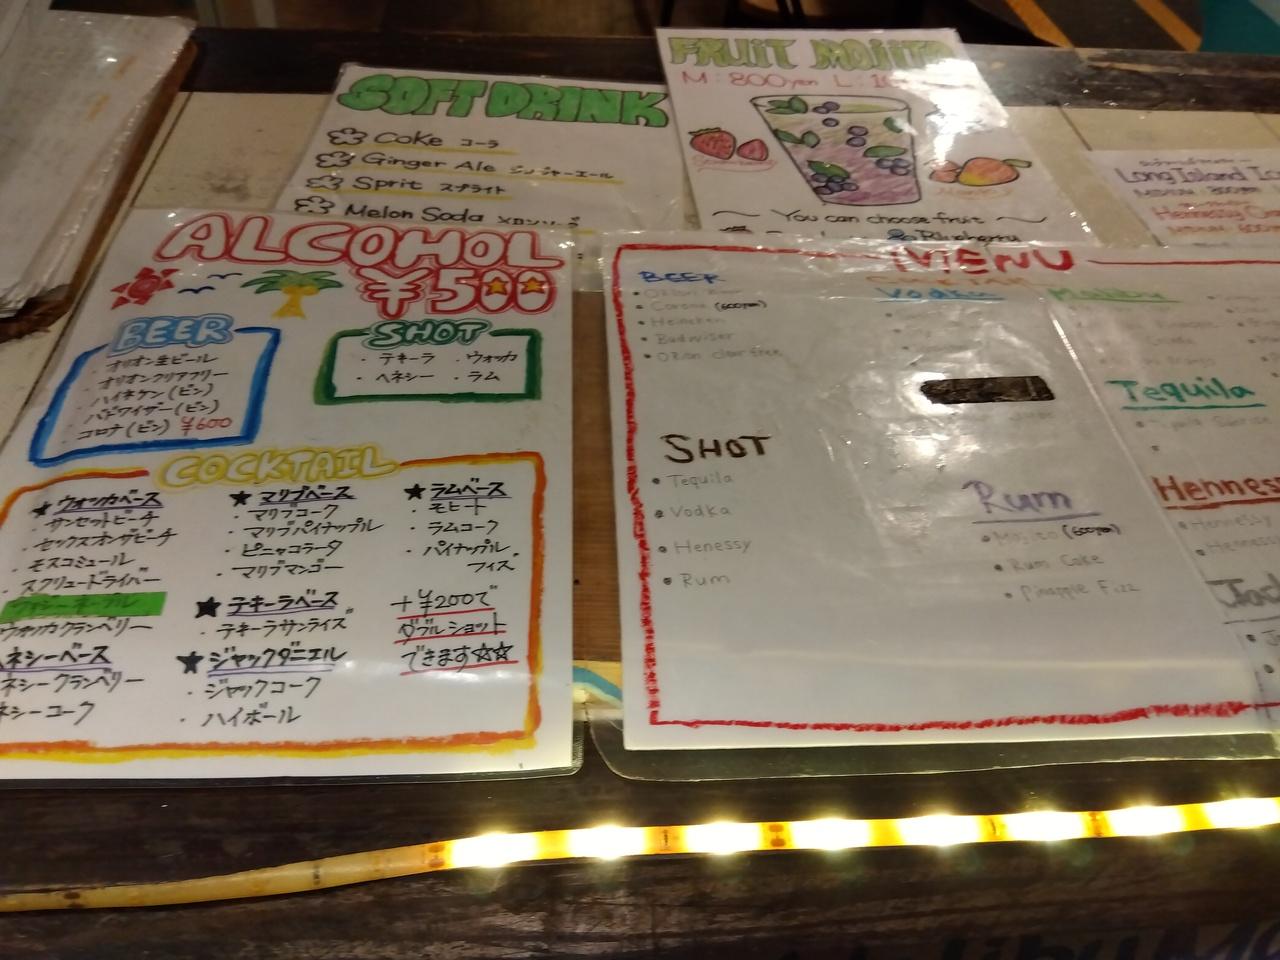 SOFT DRINK
Coke コーラ
Ginger Ale ジンジャーエール
Sprit スプライト
Melon Soda メロンソーダ
FRUIT MOJITO
M:800yen L:
You can choose fruit
Blueberry
Long Island
ALCOHOL
¥500
BEER
・オリオン生ビール
・オリオンクリアフリー
・ハイネケン(ビン)
・バドワイザー(ビン)
・コロナ(ビン) ¥600
SHOT
・テキーラ ・ウォッカ
・ヘネシー ・ラム
COCKTAIL
★ウォッカベース
・サンセットビーチ
・セックスオンザビーチ
モスコミュール
スクリュードライバー
ウォッカクランベリー
ヘネシーベース
ネシークランベリー
ネシーコーク
★マリブベース
・マリブコーク
・マリブパイナップル
・ピニャコラータ
・マリブマンゴー
★テキーラベース
・テキーラサンライズ
★ジャックダニエル
・ジャックコーク
・ハイボール
★ラムベース
・モヒート
・ラムコーク
・パイナップル
フィズ
+¥200で
ダブルショット
できます☆☆
MENU
BEER
• Corona (600yen)
• Heineken
• Budwiser
• Orion clear free
SHOT
• Tequila
• Vodka
• Henessy
• Rum
Vodka
Rum
• Mojito (600yen)
• Rum Coke
• Pinapple Fizz
Malibu
Tequila
Hennes